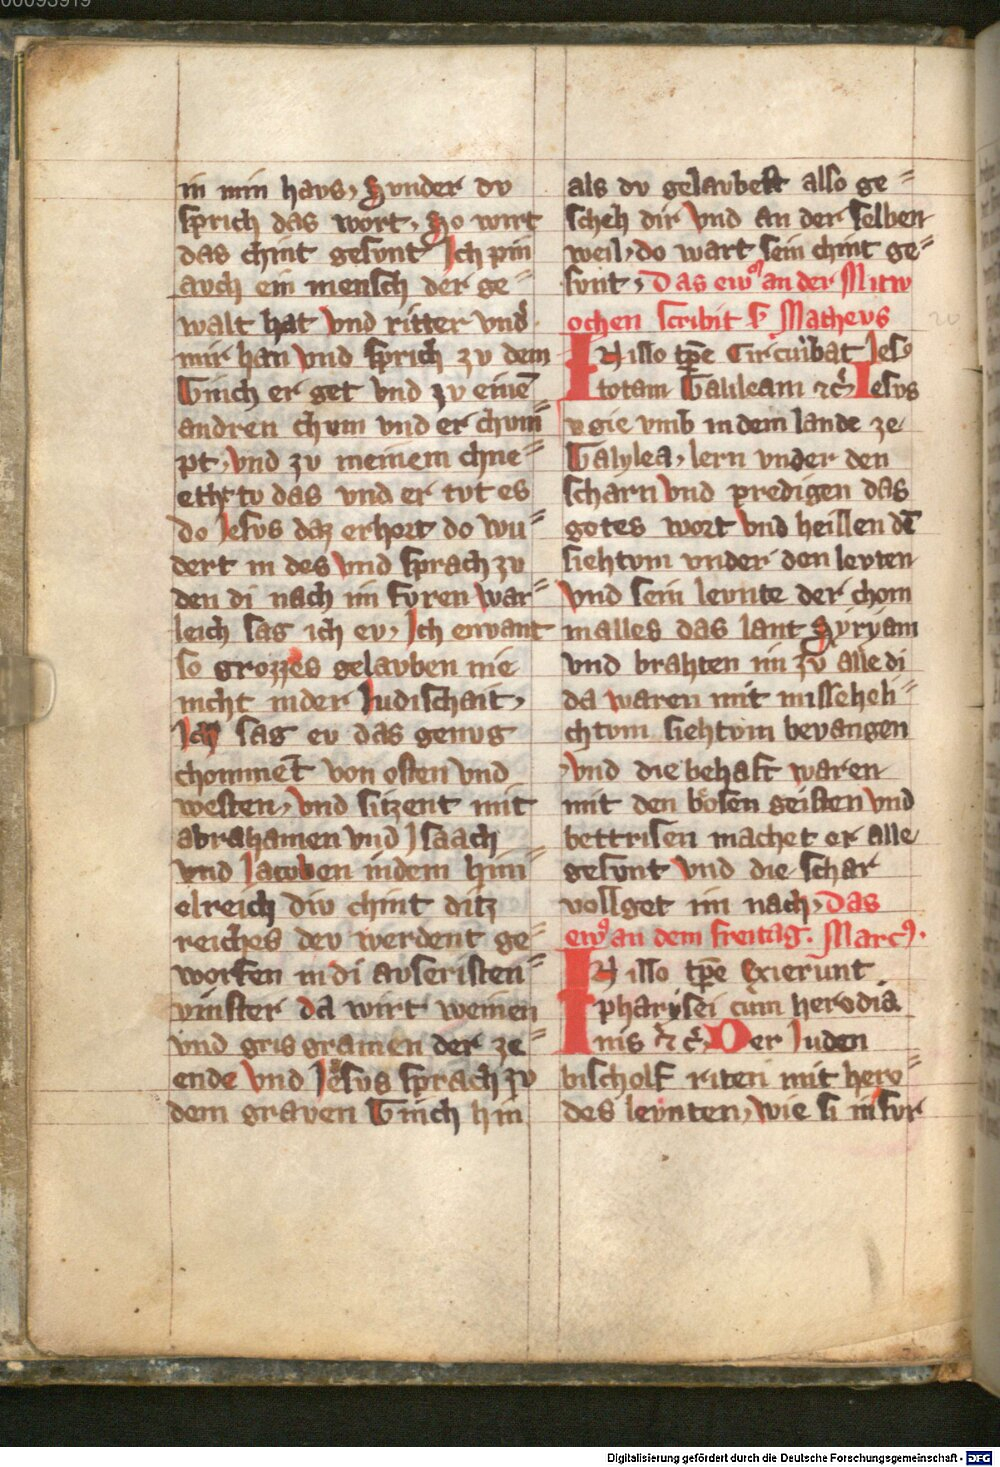 00093919
in min havs, Sunder dv
sprich das wort, So wirt
das chint gesvnt Ich pin
avch ein mensch der ge=
walt hat vnd ritter vnd͛
mir han vnd sprich zv dem
Ginch er get vnd zv eine̅
andren chvm vnd er chvm=
pt, vnd zv meinem chne=
cht tv das vnd er tvt es
do Jesvs daz erhort do wu=
dert in des vnd sprach zv
den di nach im fvren war=
leich sag ich ev, Ich envant
so grozzes gelavben nie
nicht inder Judischait,
Ich sag ev das genvg
chomme̅t von osten vnd
westen, vnd sitzent mit
abrahamen vnd Isaach
vnd Jacoben indem him=
elreich div chint ditz
reiches dev werdent ge=
worfen in di avseristen=
vinster da wirt weinen
vnd gris gramen der ze=
ende vnd Jesvs sprach zv
dem graven Ginch hin
als dv gelavbest also ge=
scheh dir vnd an der selben
weil, do wart sein chint ge=
svnt, Das ew͛ an der Mitw
ochen scribit s͛ Mathevs
IN illo tp̅e Circuibat Jes͛
totam Galileam ⁊c͛ Jesvs
vgie vmb in dem lande ze
Galylea, lern vnder den
scharn vnd predigen das
gotes wort vnd heillen de̅
siehtvm vnder den levten
vnd sein levnte der chom
in alles das lant Syryam
vnd brahten im zv alle di
da waren mit misseheli=
chtvm siehtvm bevangen
, vnd die behaft waren
mit den bosen geisten vnd
bettrisen machet er alle
gesvnt vnd die schar
vollget im nach, Das
ew͛ an dem freitag. Marc͛.
IN illo tp̅e Exierunt
pharisei cum herodia
nis ⁊ c͛, Der Juden
bischolf riten mit hero=
des levnten, wie si in fvr
Digitalisierung gefördert durch die Deutsche Forschungsgemeinschaft - DFG